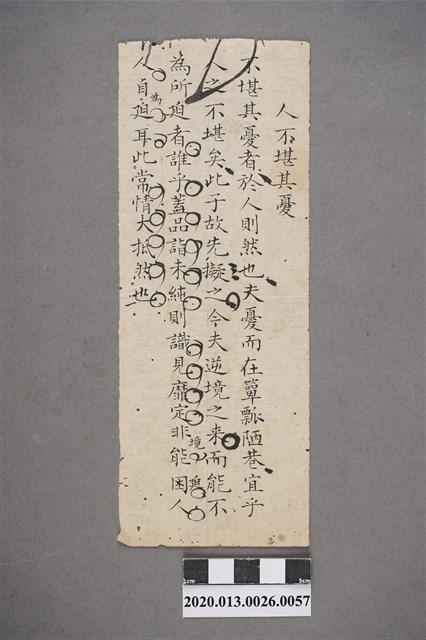 人不堪其憂
不堪其憂者於人則然也夫憂而在簞瓢陋巷宜乎
人之不堪矣此子故先擬之今夫逆境之来而能不
為所迫者誰乎蓋品詣未純則識見靡定非能困人
境
人自迫耳此常情大抵然也
為
1cm
5cm
2020.013.0026.0057